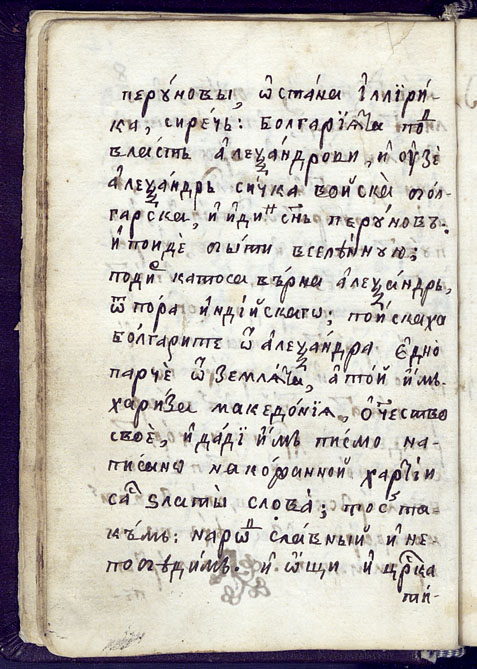 перꙋ́новы, ѡ҆ста́на і҆ллїри́-
ка, сире́чь: болгарїѧ́та поⷣ
вла́сть а҆леѯа́ндрови, и҆ ѹ҆зѐ
а҆леѯа́ндрь си́чка войска̀ бол-
гарска, и҆ и҆ди́нъ сн҃ъ перꙋ́новъ.
и҆ поидѐ бы́ти вселе́ннꙋю;
катоса вѣ́рна а҆леѯа́ндрь,
ѿ по́ра и҆нді́йскагѡ; по́искаха
бо́лгаритѣ ѿ а҆леѯа́ндра є҆дно̀
парчѐ ѿ землѧ́та, а҆ то́й и҆́мъ
хари́за македо́нїѧ, ѻ҆те́чество
своѐ, и҆ да́дѐ и҆́мъ писмо̀ на-
писано на кожанной ха́ртїи
са злати́ слова̀; пос та-
къмъ: наро́дⷣ сла́вный и҆ не-
побѣди́мъ. и҆ ѡ҆́щи и҆ цр҃ка
ти-